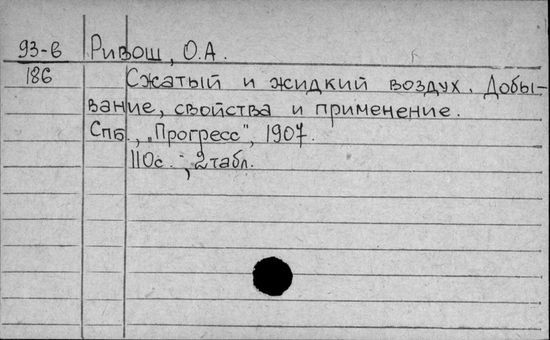 93-6 Ривош, О.А.
186
Сжатый и жидкий воздух. Добы-
вание, свойства и применение.
Спб., „Прогресс", 1907.
110с., 2табл.